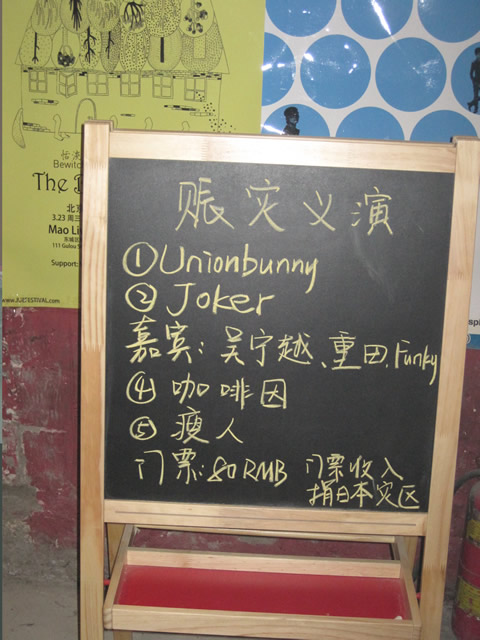 怡流
Bewitc
The B
北京
3.23 周三
Mao Li
东城区
111 Gulou
Support:
www.JUEFESTIVAL.com
spi
赈灾义演
①Unionbunny
②Joker
嘉宾:吴宁越、重田.Funky
④咖啡因
⑤瘦人
门票:80RMB 门票收入
捐日本灾区